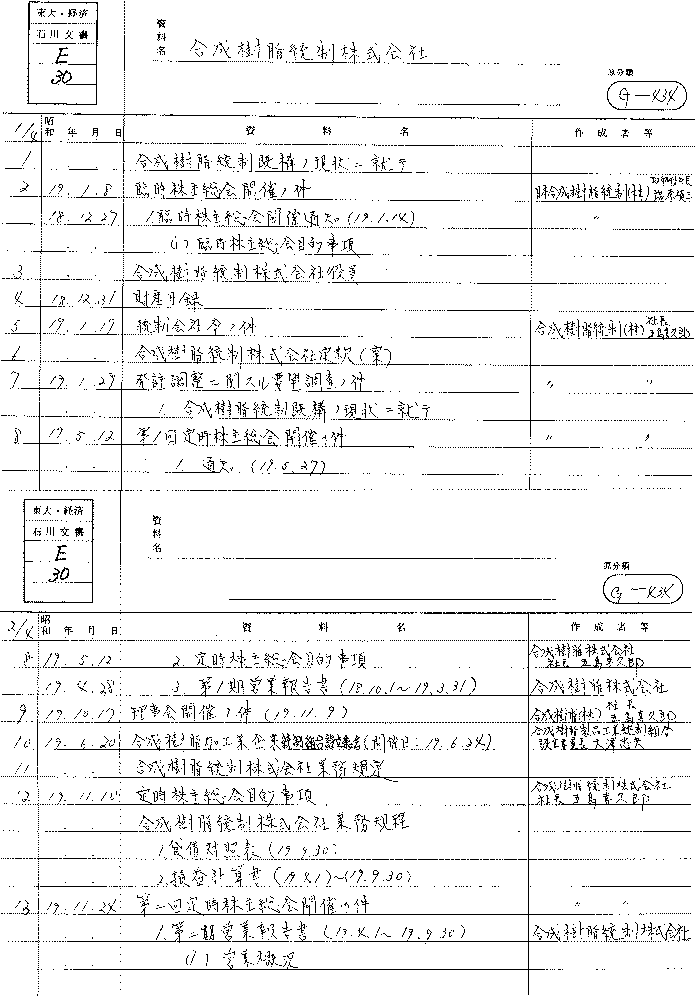 東大・経済
石川文書
E
30
資料名
合成樹脂統制株式会社
原分類
G-434
1/4 昭和 年 月 日 資料名 作成者等
1 合成樹脂統制既構ノ現状ニ就テ
2 19.1.8 臨時株主総会開催ノ件 日本合成樹脂統制(株)
18.12.27 1.臨時株主総会開催通知(19.1.14) 〃
(1) 臨時株主総会目的事項
3 合成樹脂統制株式会社役員
4 18.12.31 財産目録
5 19.1.17 統制会社令ノ件 合成樹脂統制(株) 社長
6 合成樹脂統制株式会社定款(案)
7 19.1.29 発註調整ニ関スル要望調査ノ件 〃 〃
1. 合成樹脂統制既構ノ現状ニ就テ
8 19.5.12 第1回定時株主総会開催ノ件 〃 〃
1. 通知 (19.5.27)
東大・経済
石川文書
E
30
資料名
原分類
G-434
2/4 昭和 年 月 日 資料名 作成者等
8 19.5.12 2. 定時株主総会目的事項 合成樹脂株式会社 社長 五島喜久郎
19.4.28 3. 第1期営業報告書(18.10.1~19.3.31) 合成樹脂株式会社
9 19.10.17 理事会開催ノ件(19.11.9) 合成樹脂(株) 社長 五島喜久郎
10 19.6.20 合成樹脂加工業企業統制組合設立(開催日:19.6.24) 合成樹脂製品工業統制組合
11 合成樹脂統制株式会社業務規定
12 19.11.15 定時株主総会目的事項 合成樹脂統制株式会社 社長 五島喜久郎
合成樹脂統制株式会社業務規程
1.貸借対照表(19.9.30)
2.損益計算書(19.4.1)~(19.9.30)
13 19.11.24 第二回定時株主総会開催ノ件 〃 〃
1.第二期営業報告書(19.4.1~19.9.30) 合成樹脂統制株式会社
(1) 営業概況